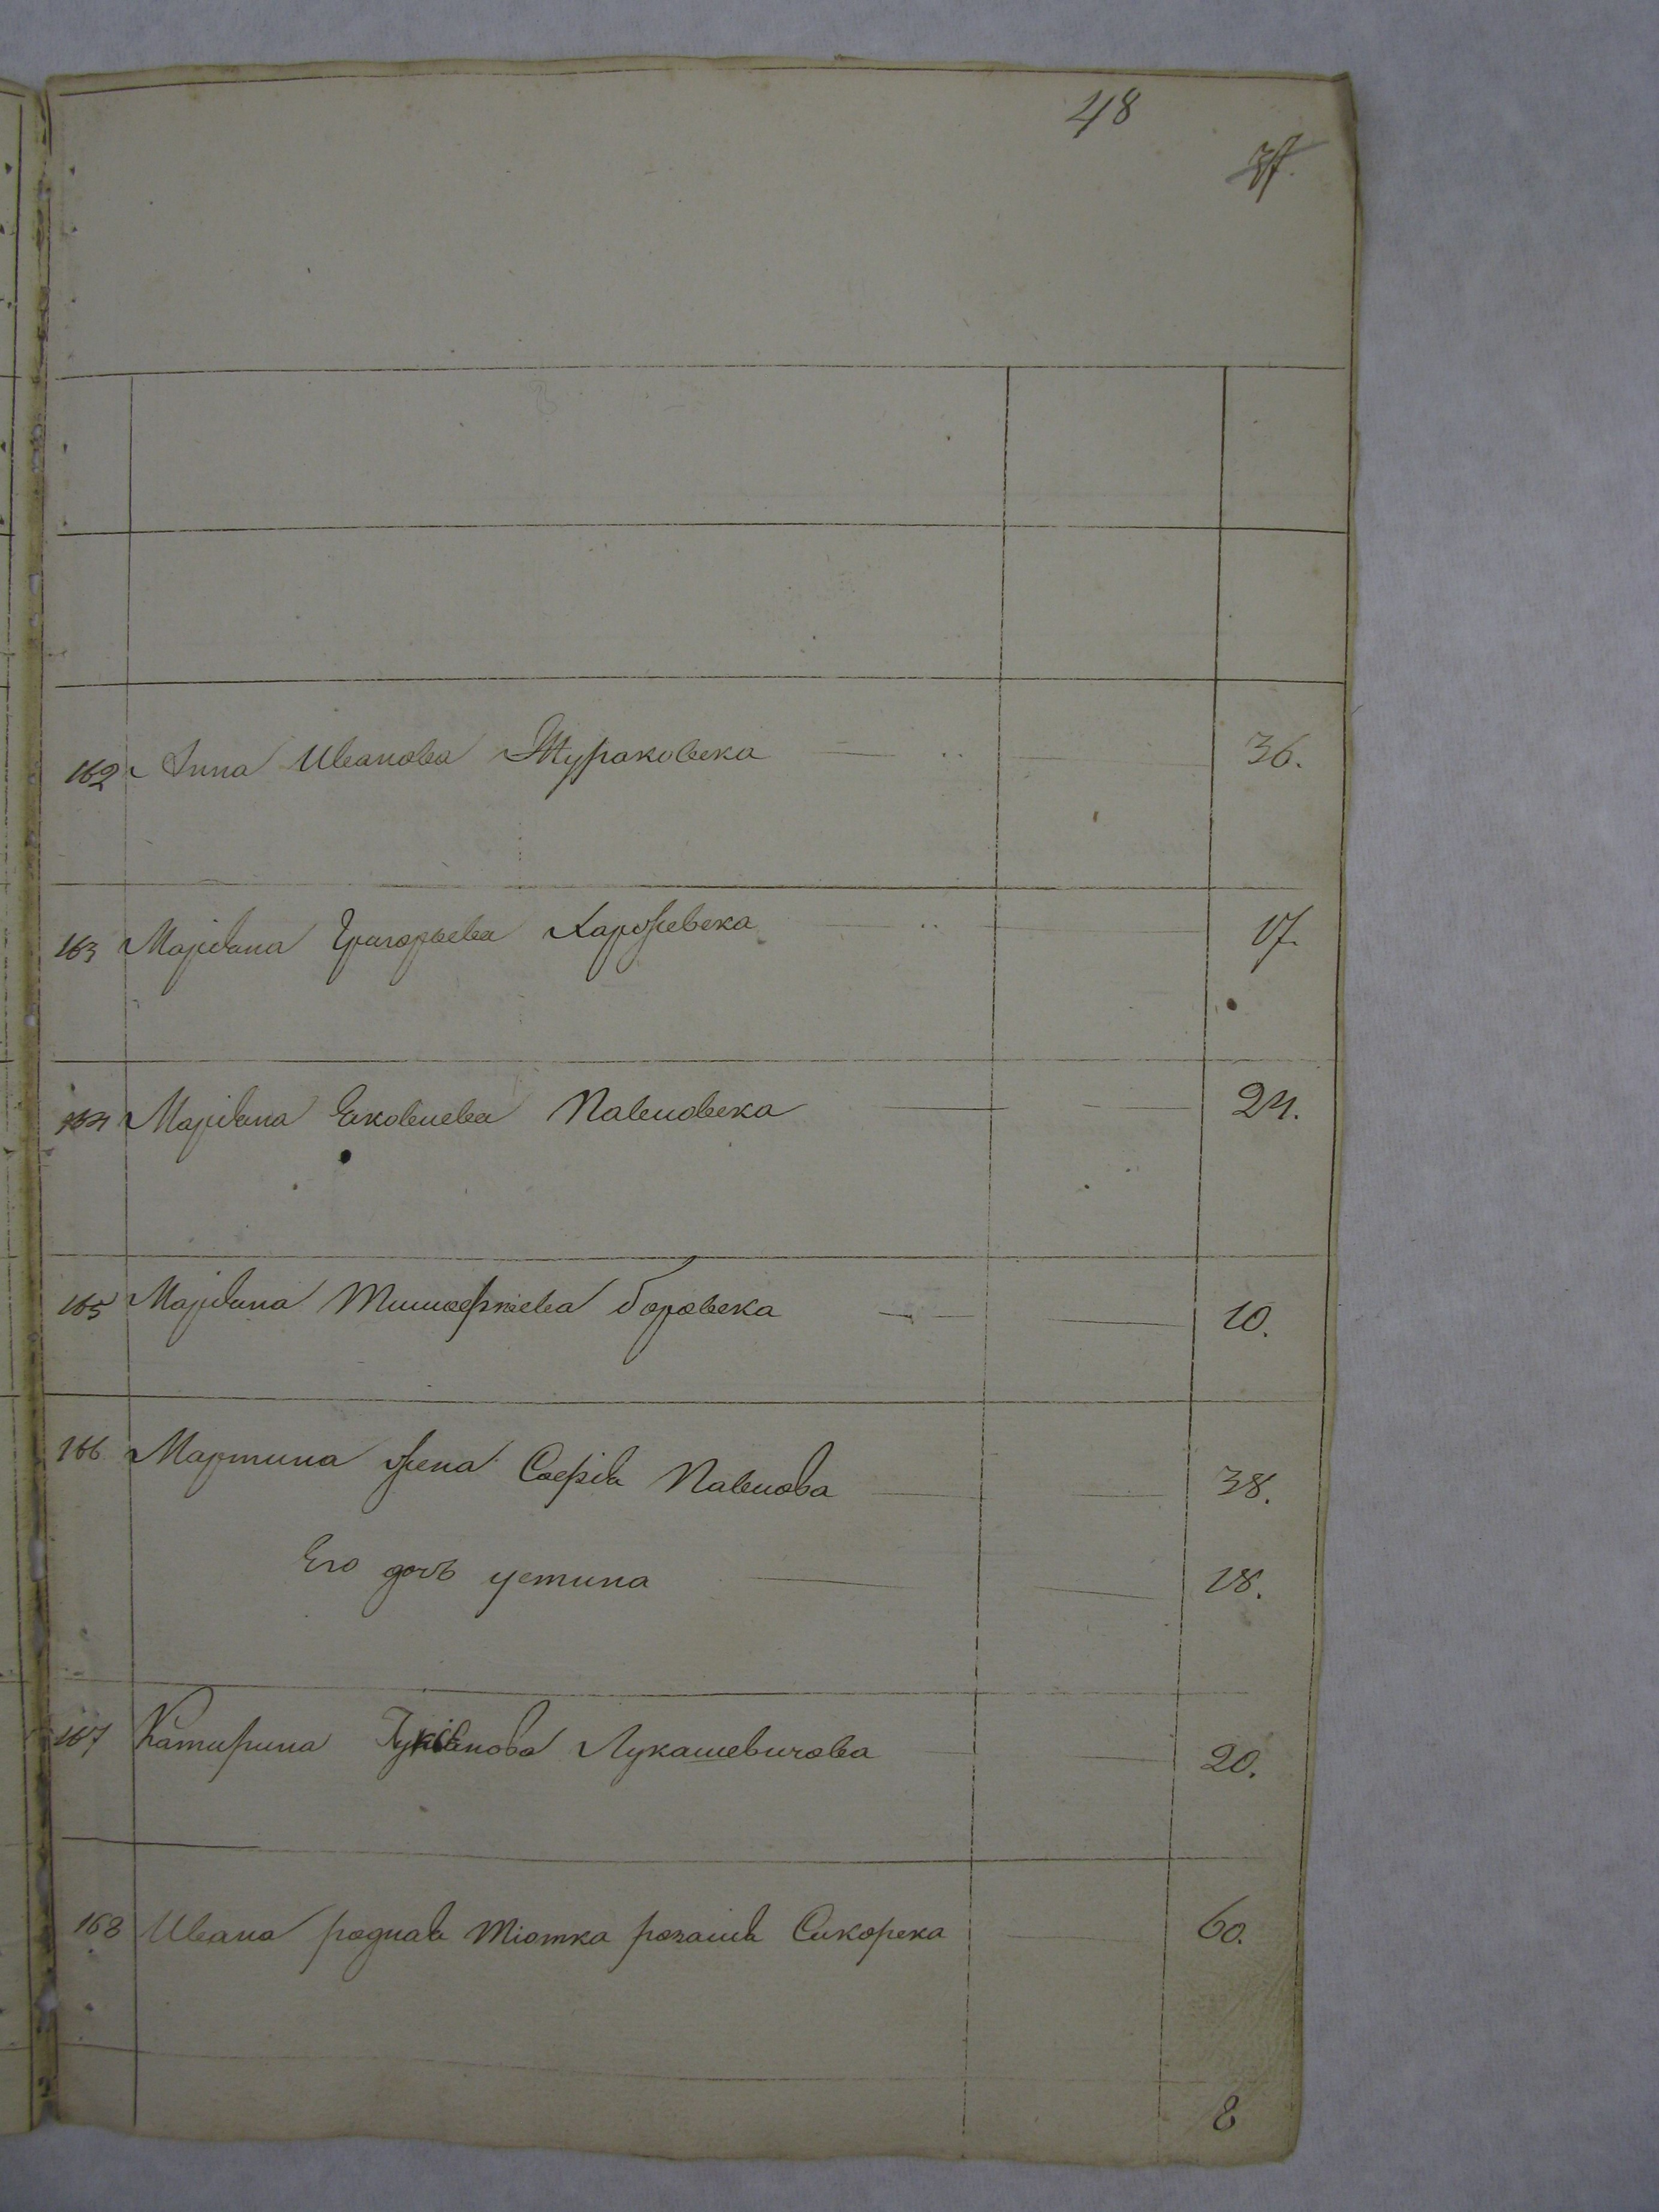 48
37.
162 Анна Иванова Жураковска 36.
163 Маріана Григорьева Каржевска 17.
164 Маріана Яковлева Павловска 24.
165 Маріана Тимофѣева Боровска 10.
166 Мартина жена Софія Павлова 38.
Его дочь устина 18.
167 Катирина Лукіанова Лукашевичова 20.
168 Ивана родная тіотка розалія Сикорска 60.
8